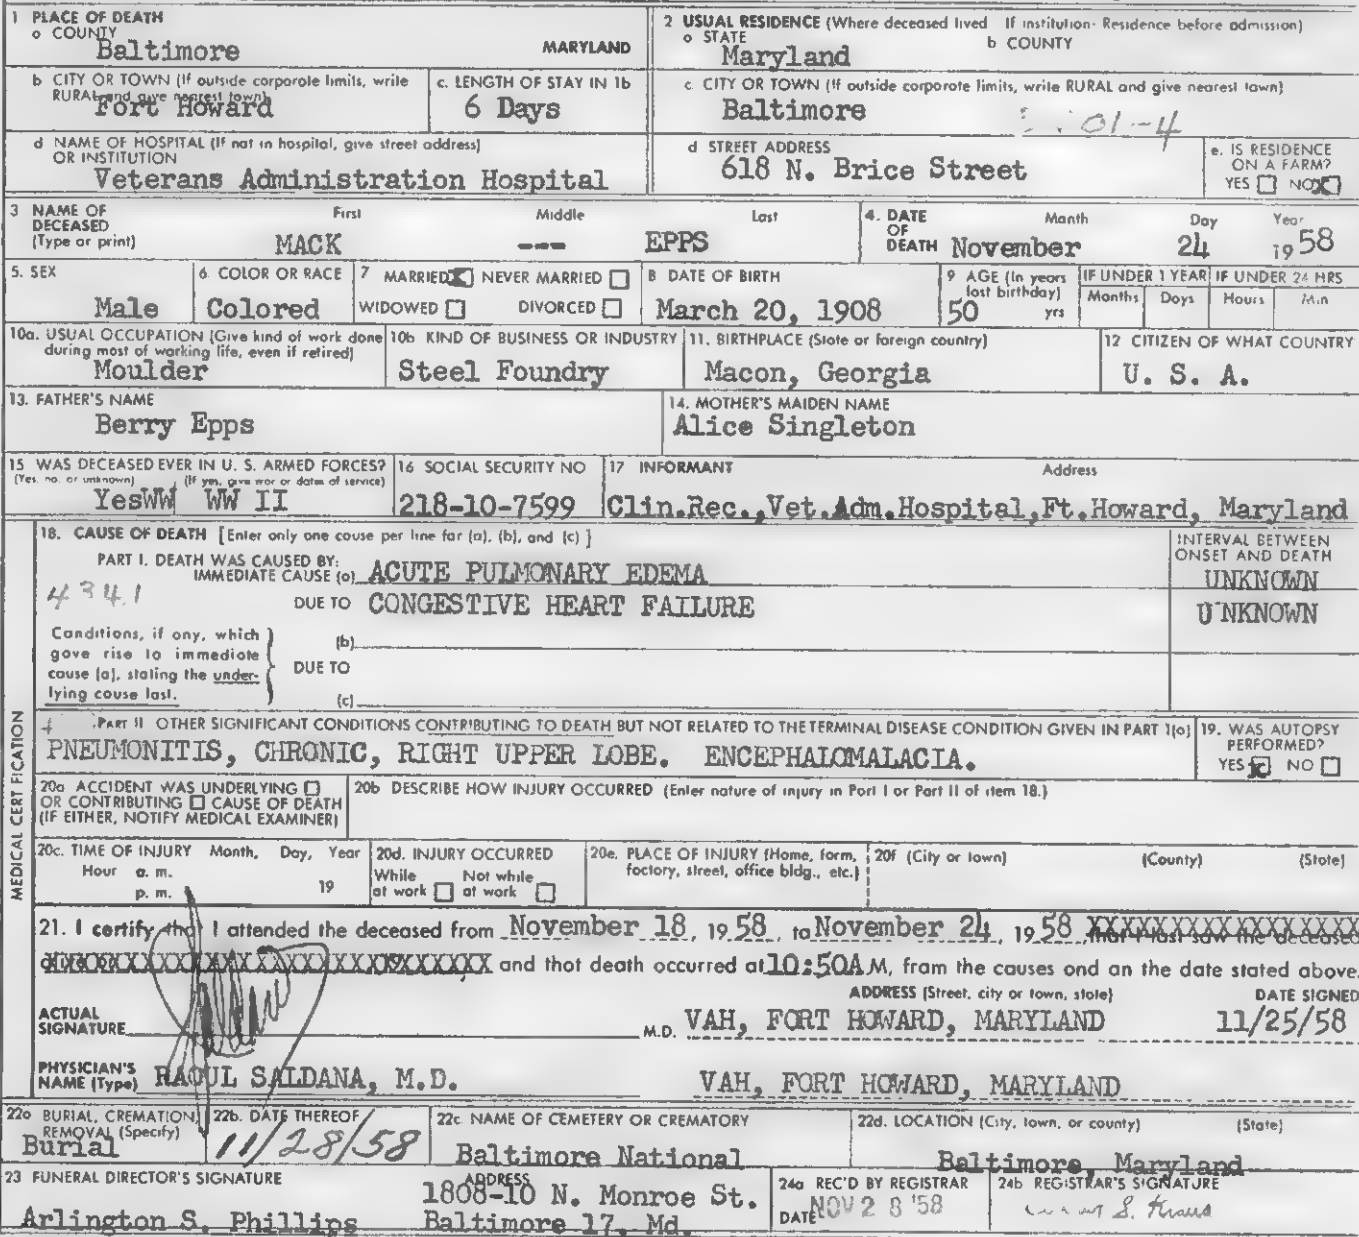 1 PLACE OF DEATH
a COUNTY
Baltimore MARYLAND
2 USUAL RESIDENCE (Where deceased lived If institution- Residence before admission)
a STATE b COUNTY
Maryland
b CITY OR TOWN (If outside corporate limits, write RURAL and give nearest town)
Fort Howard
c. LENGTH OF STAY IN 1b
6 Days
c. CITY OR TOWN (If outside corporate limits, write RURAL and give nearest town)
Baltimore
01-4
d NAME OF HOSPITAL (If not in hospital, give street address)
OR INSTITUTION
Veterans Administration Hospital
d STREET ADDRESS
618 N. Brice Street
e. IS RESIDENCE
ON A FARM?
YES NO X
3 NAME OF
DECEASED
(Type or print)
First Middle Last
MACK --- EPPS
4. DATE
OF
DEATH
Month Day Year
November 24 19 58
5. SEX
Male
6. COLOR OR RACE
Colored
7 MARRIED X NEVER MARRIED
WIDOWED DIVORCED
8 DATE OF BIRTH
March 20, 1908
9 AGE (In years
last birthday)
50 yrs
IF UNDER 1 YEAR
Months Days
IF UNDER 24 HRS
Hours Min
10a. USUAL OCCUPATION (Give kind of work done
during most of working life, even if retired)
Moulder
10b KIND OF BUSINESS OR INDUSTRY
Steel Foundry
11. BIRTHPLACE (State or foreign country)
Macon, Georgia
12 CITIZEN OF WHAT COUNTRY
U. S. A.
13. FATHER'S NAME
Berry Epps
14. MOTHER'S MAIDEN NAME
Alice Singleton
15 WAS DECEASED EVER IN U. S. ARMED FORCES?
(Yes, no, or unknown) (If yes, give war or dates of service)
YesWW WW II
16 SOCIAL SECURITY NO
218-10-7599
17 INFORMANT Address
Clin.Rec.,Vet.Adm.Hospital,Ft.Howard, Maryland
MEDICAL CERTIFICATION
18. CAUSE OF DEATH [Enter only one cause per line for (a), (b), and (c) ]
INTERVAL BETWEEN
ONSET AND DEATH
PART I. DEATH WAS CAUSED BY:
IMMEDIATE CAUSE (a) ACUTE PULMONARY EDEMA UNKNOWN
434.1
DUE TO CONGESTIVE HEART FAILURE UNKNOWN
Conditions, if any, which
gave rise to immediate
cause (a), stating the under-
lying cause last.
(b)
DUE TO
(c)
PART II OTHER SIGNIFICANT CONDITIONS CONTRIBUTING TO DEATH BUT NOT RELATED TO THE TERMINAL DISEASE CONDITION GIVEN IN PART 1(a)
PNEUMONITIS, CHRONIC, RIGHT UPPER LOBE. ENCEPHALOMALACIA.
19. WAS AUTOPSY
PERFORMED?
YES X NO
20a ACCIDENT WAS UNDERLYING
OR CONTRIBUTING CAUSE OF DEATH
(IF EITHER, NOTIFY MEDICAL EXAMINER)
20b DESCRIBE HOW INJURY OCCURRED (Enter nature of injury in Part I or Part II of item 18.)
20c. TIME OF INJURY Month, Day, Year
Hour a. m.
p. m. 19
20d. INJURY OCCURRED
While Not while
at work at work
20e. PLACE OF INJURY (Home, farm,
factory, street, office bldg., etc.)
20f (City or town) (County) (State)
21. I certify that I attended the deceased from November 18, 19 58, to November 24, 19 58, that I last saw the deceased
and that death occurred at 10:50A M, from the causes and on the date stated above.
ADDRESS (Street, city or town, state) DATE SIGNED
ACTUAL
SIGNATURE M.D. VAH, FORT HOWARD, MARYLAND 11/25/58
PHYSICIAN'S
NAME (Type) RAOUL SALDANA, M.D. VAH, FORT HOWARD, MARYLAND
22a BURIAL, CREMATION,
REMOVAL (Specify)
Burial
22b. DATE THEREOF
11/28/58
22c NAME OF CEMETERY OR CREMATORY
Baltimore National
22d. LOCATION (City, town, or county) (State)
Baltimore, Maryland
23 FUNERAL DIRECTOR'S SIGNATURE
Arlington S. Phillips
ADDRESS
1808-10 N. Monroe St.
Baltimore 17, Md.
24a REC'D BY REGISTRAR
DATE NOV 28 '58
24b REGISTRAR'S SIGNATURE
S. Kraus